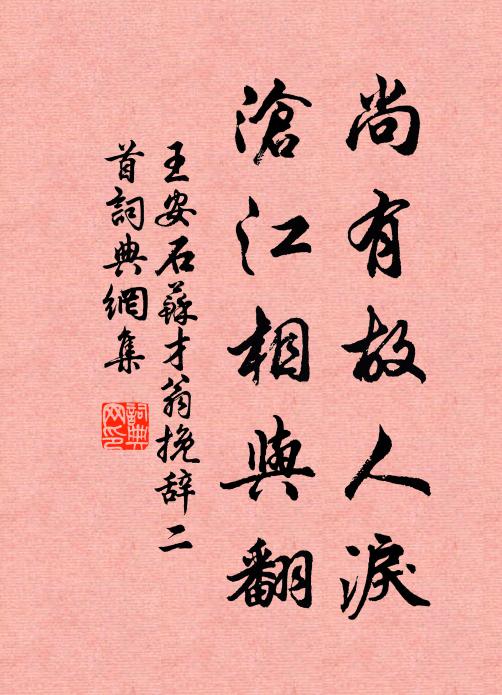 尚有故人淚
滄江相與翻
王安石蘇才翁挽辞二
首詞典網集
詞典
网印